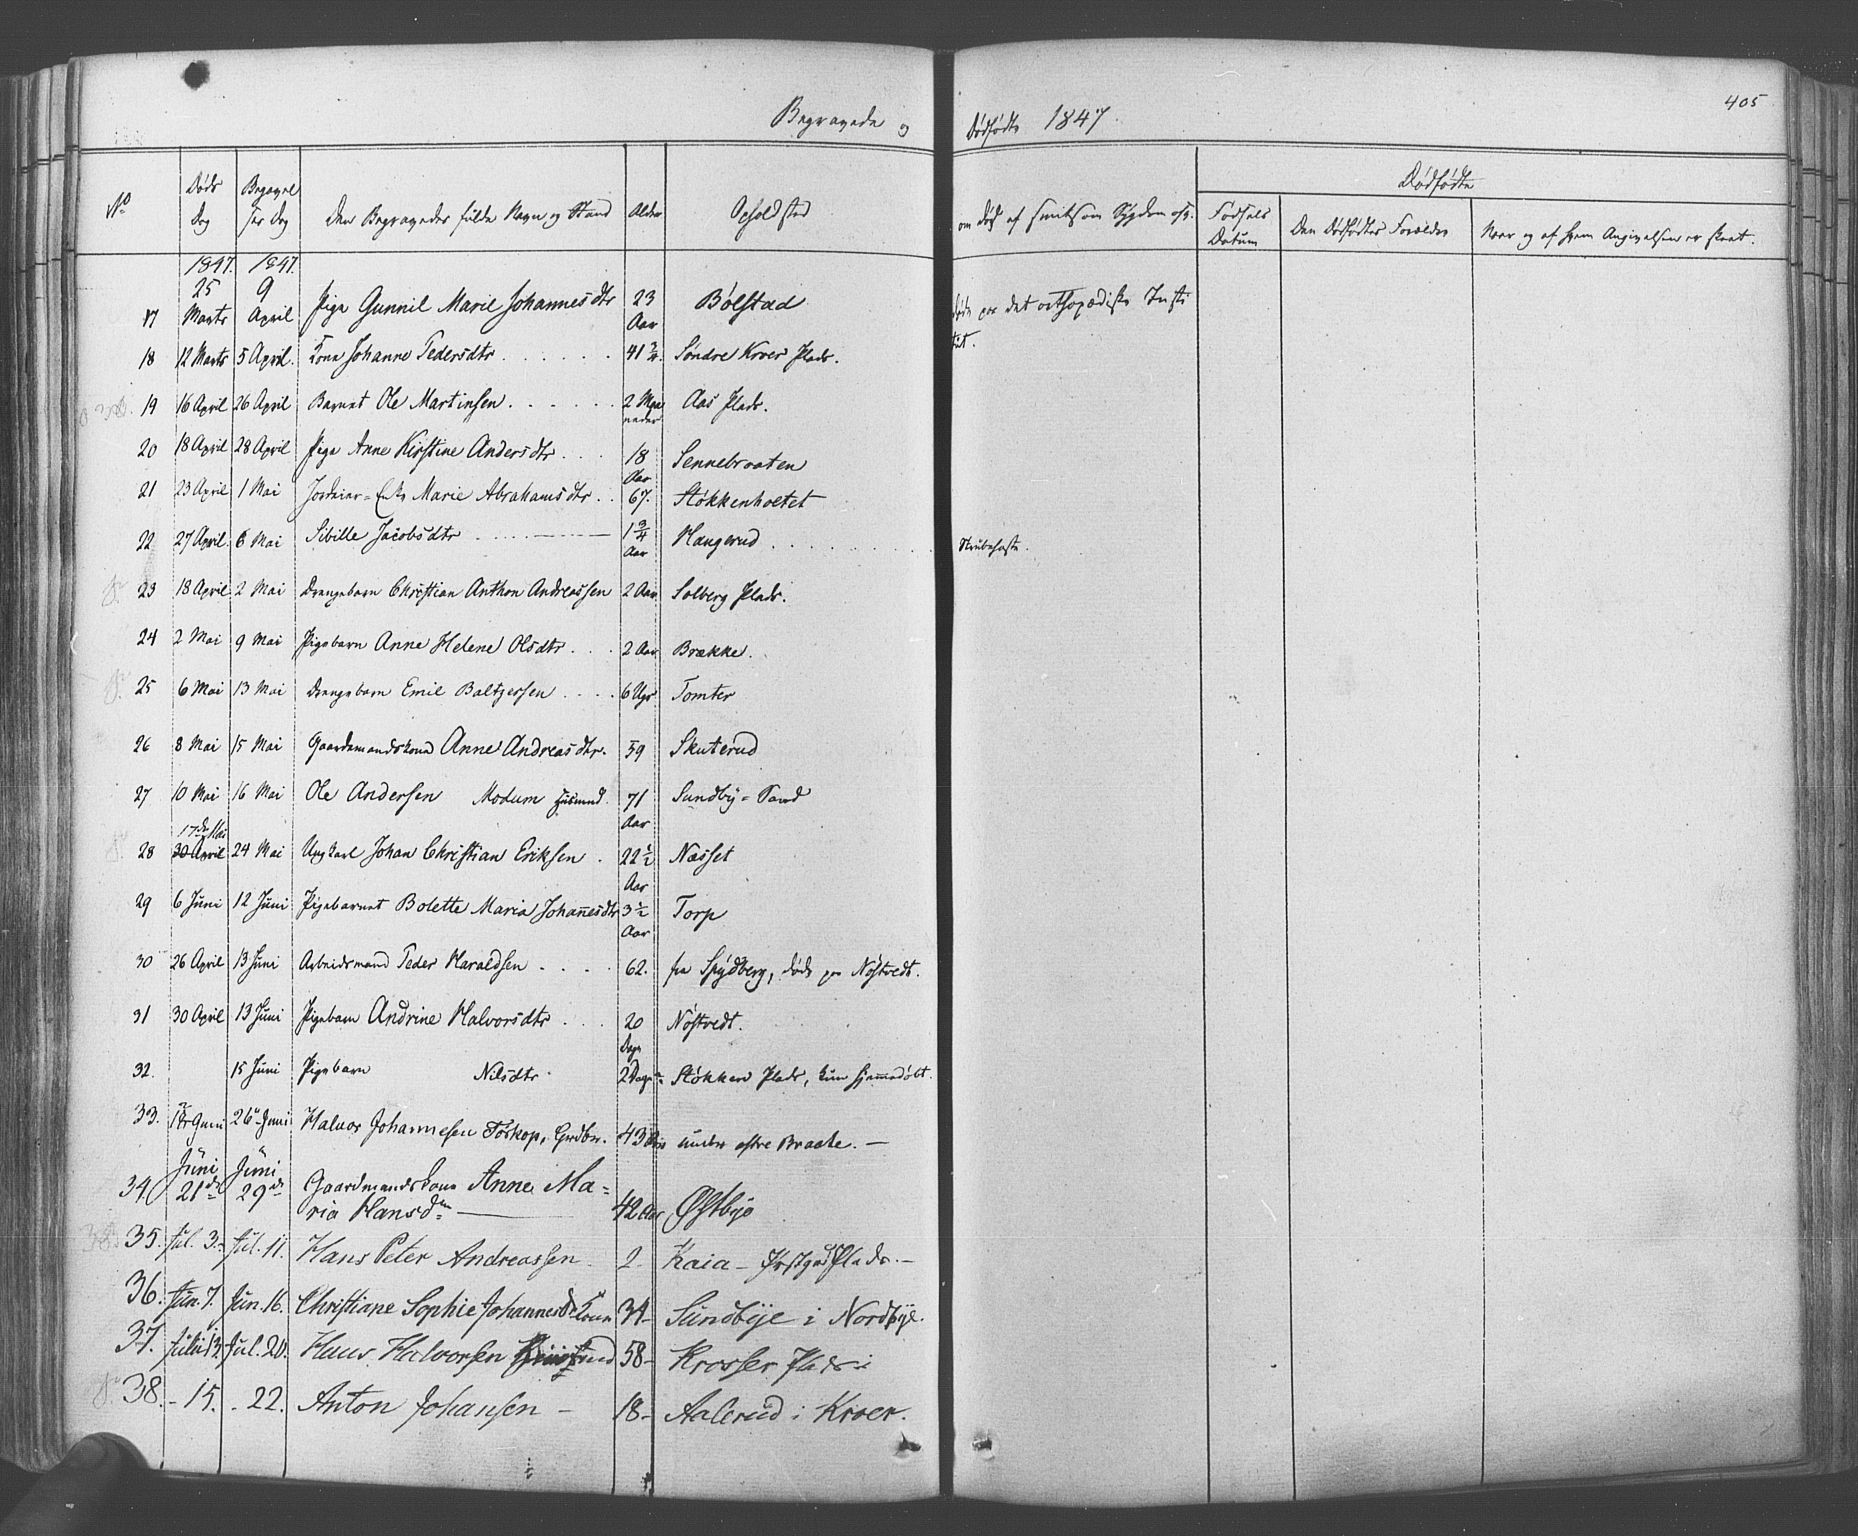 Begravede og Dødfødte 1847. 405
No Døds Dag Begravelses Dag Den Begravedes fulde Navn og Stand Alder Opholdsted om død af smitsom Sygdom osv. Dødfødte
Fødsels Datum Den Dødfødtes Forældre Naar og af hvem Angivelsen er skeet.
1847. 1847.
17 25 Marts 9 April Pige Gunnil Marie Johannesdtr 23 Aar Bølstad døde paa det orthopædiske Insti
tut.
18 12 Marts 5 April. Kona Johanne Pedersdtr 41 Søndre Kroer Plads.
19 16 April 26 April Barnet Ole Martinsen 2 Maaneder Aas Plads.
20 18 April 28 April Pige Anne Kirstine Andersdtr 18 Aar Sennebraaten
21 23 April 1 Mai Marie Abrahamsdtr 67. Støkkenholtet
22 27 April 6 Mai Sibille Jacobsdtr 1 3/4 Aar Haugerud Strubehoste.
23 18 April 2 Mai Drengebarn Christian Anthon Andreassen 2 Aar Solberg Plads.
24 2 Mai 9 Mai Pigebarn Anne Helene Olsdtr 2 Aar Brække.
25 6 Mai 13 Mai Drengebarn Emil Baltzersen 6 Uger Tomter
26 8 Mai 15 Mai Gaardmandskone Anne Andreasdtr. 59 Skuterud
27 10 Mai 16 Mai Ole Andersen Modum Huusmnd. 71 Aar Sundby-Sand
28 17de Mai 30 April 24 Mai Ungkarl Johan Christian Eriksen 22 1/2 Aar Næsset
29 6 Juni 12 Juni Pigebarnet Bolette Maria Johannesdtr 3 1/2 Aar Torp
30 26 April 13 Juni Arbeidsmand Peder Haraldsen 62. fra Spydberg, døde paa Nøstvedt.
31 30 April 13 Juni Pigebarn Andrine Halvorsdtr 20 Dage Nøstvedt.
32. 15 Juni Pigebarn Nilsdtr 2 Dage Støkken Plads, kun hjemmedøbt.
33. Juni 26 Juni Halvor Johannesen Toskop, Grdbr. 43 Aar under østre Braate.
34. Juni 21de Juni 29de Gaardmandskone Anne Ma=
ria Hansdn 42 Aar Østbye
35. Jul. 3. Jul. 11. Hans Peter Andreassen 2. Kaia - Plads.
36. Jun. 7. Jun. 16. Christiane Sophie Johannesdr Kone 34 Sundbye i Nordbye.
37. Juli 13. Jul. 20. Hans Halvorsen 58 Krosser Plads
38. - 15. - 22. Anton Johansen 18. Aalerud i Kroer.